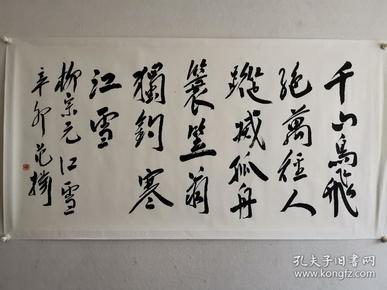 千山鳥飛
絕萬徑人
蹤滅孤舟
蓑笠翁
獨釣寒
江雪
柳宗元江雪
辛卯
孔夫子旧书网
www.kongfz.com